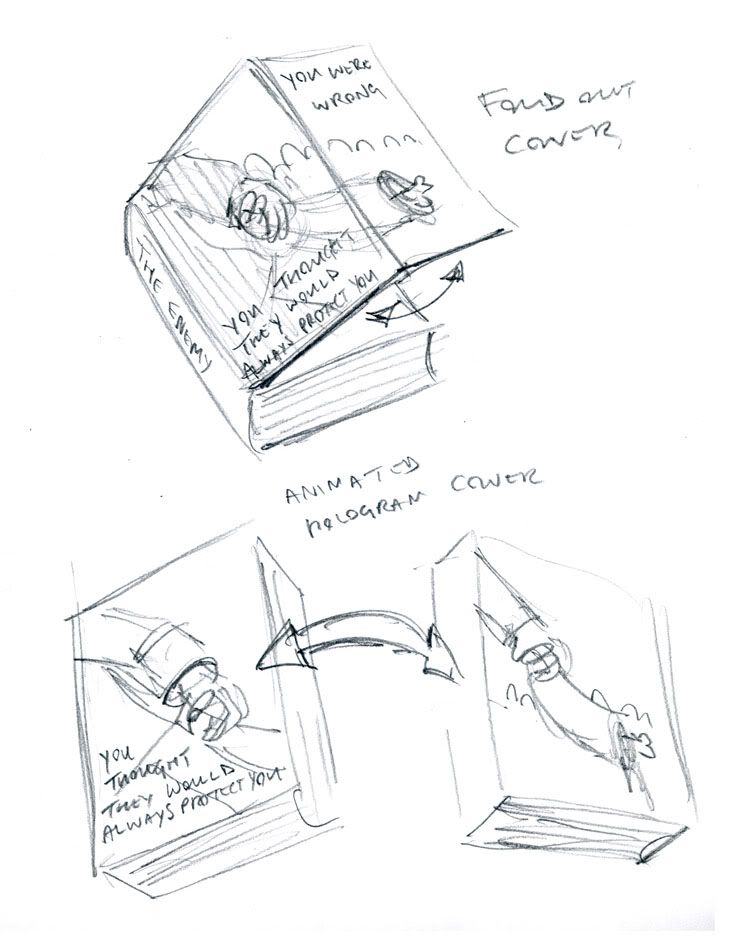 YOU WERE
WRONG
FOLD OUT
COVER
THE ENEMY
YOU THOUGHT
THEY WOULD
ALWAYS PROTECT YOU
ANIMATED
HOLOGRAM COVER
YOU
THOUGHT
THEY WOULD
ALWAYS PROTECT YOU